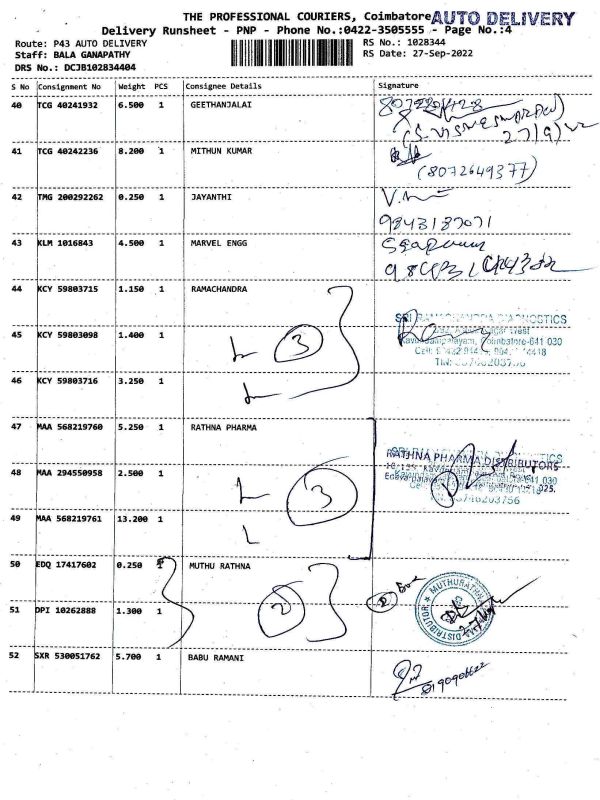 THE PROFESSIONAL COURIERS, Coimbatore AUTO DELIVERY
Delivery Runsheet - PNP - Phone No.:0422-3505555 - Page No.:4
Route: P43 AUTO DELIVERY
RS No.: 1028344
Staff: BALA GANAPATHY
RS Date: 27-Sep-2022
DRS No.: DCJB102834404
S No Consignment No Weight PCS Consignee Details Signature
40 TCG 40241932 6.500 1 GEETHANJALAI
27/9/22
41 TCG 40242236 8.200 1 MITHUN KUMAR
(8072649377)
42 TMG 200292262 0.250 1 JAYANTHI
9843187071
43 KLM 1016843 4.500 1 MARVEL ENGG
44 KCY 59803715 1.150 1 RAMACHANDRA
45 KCY 59803098 1.400 1
3
Coimbatore-641 030
46 KCY 59803716 3.250 1
47 MAA 568219760 5.250 1 RATHNA PHARMA
RATHNA PHARMA DISTRIBUTORS
48 MAA 294550958 2.500 1
3
49 MAA 568219761 13.200 1
50 EDQ 17417602 0.250 1 MUTHU RATHNA
2
MUTHURATHNA DISTRIBUTOR
51 DPI 10262888 1.300 1
2
52 SXR 530051762 5.700 1 BABU RAMANI